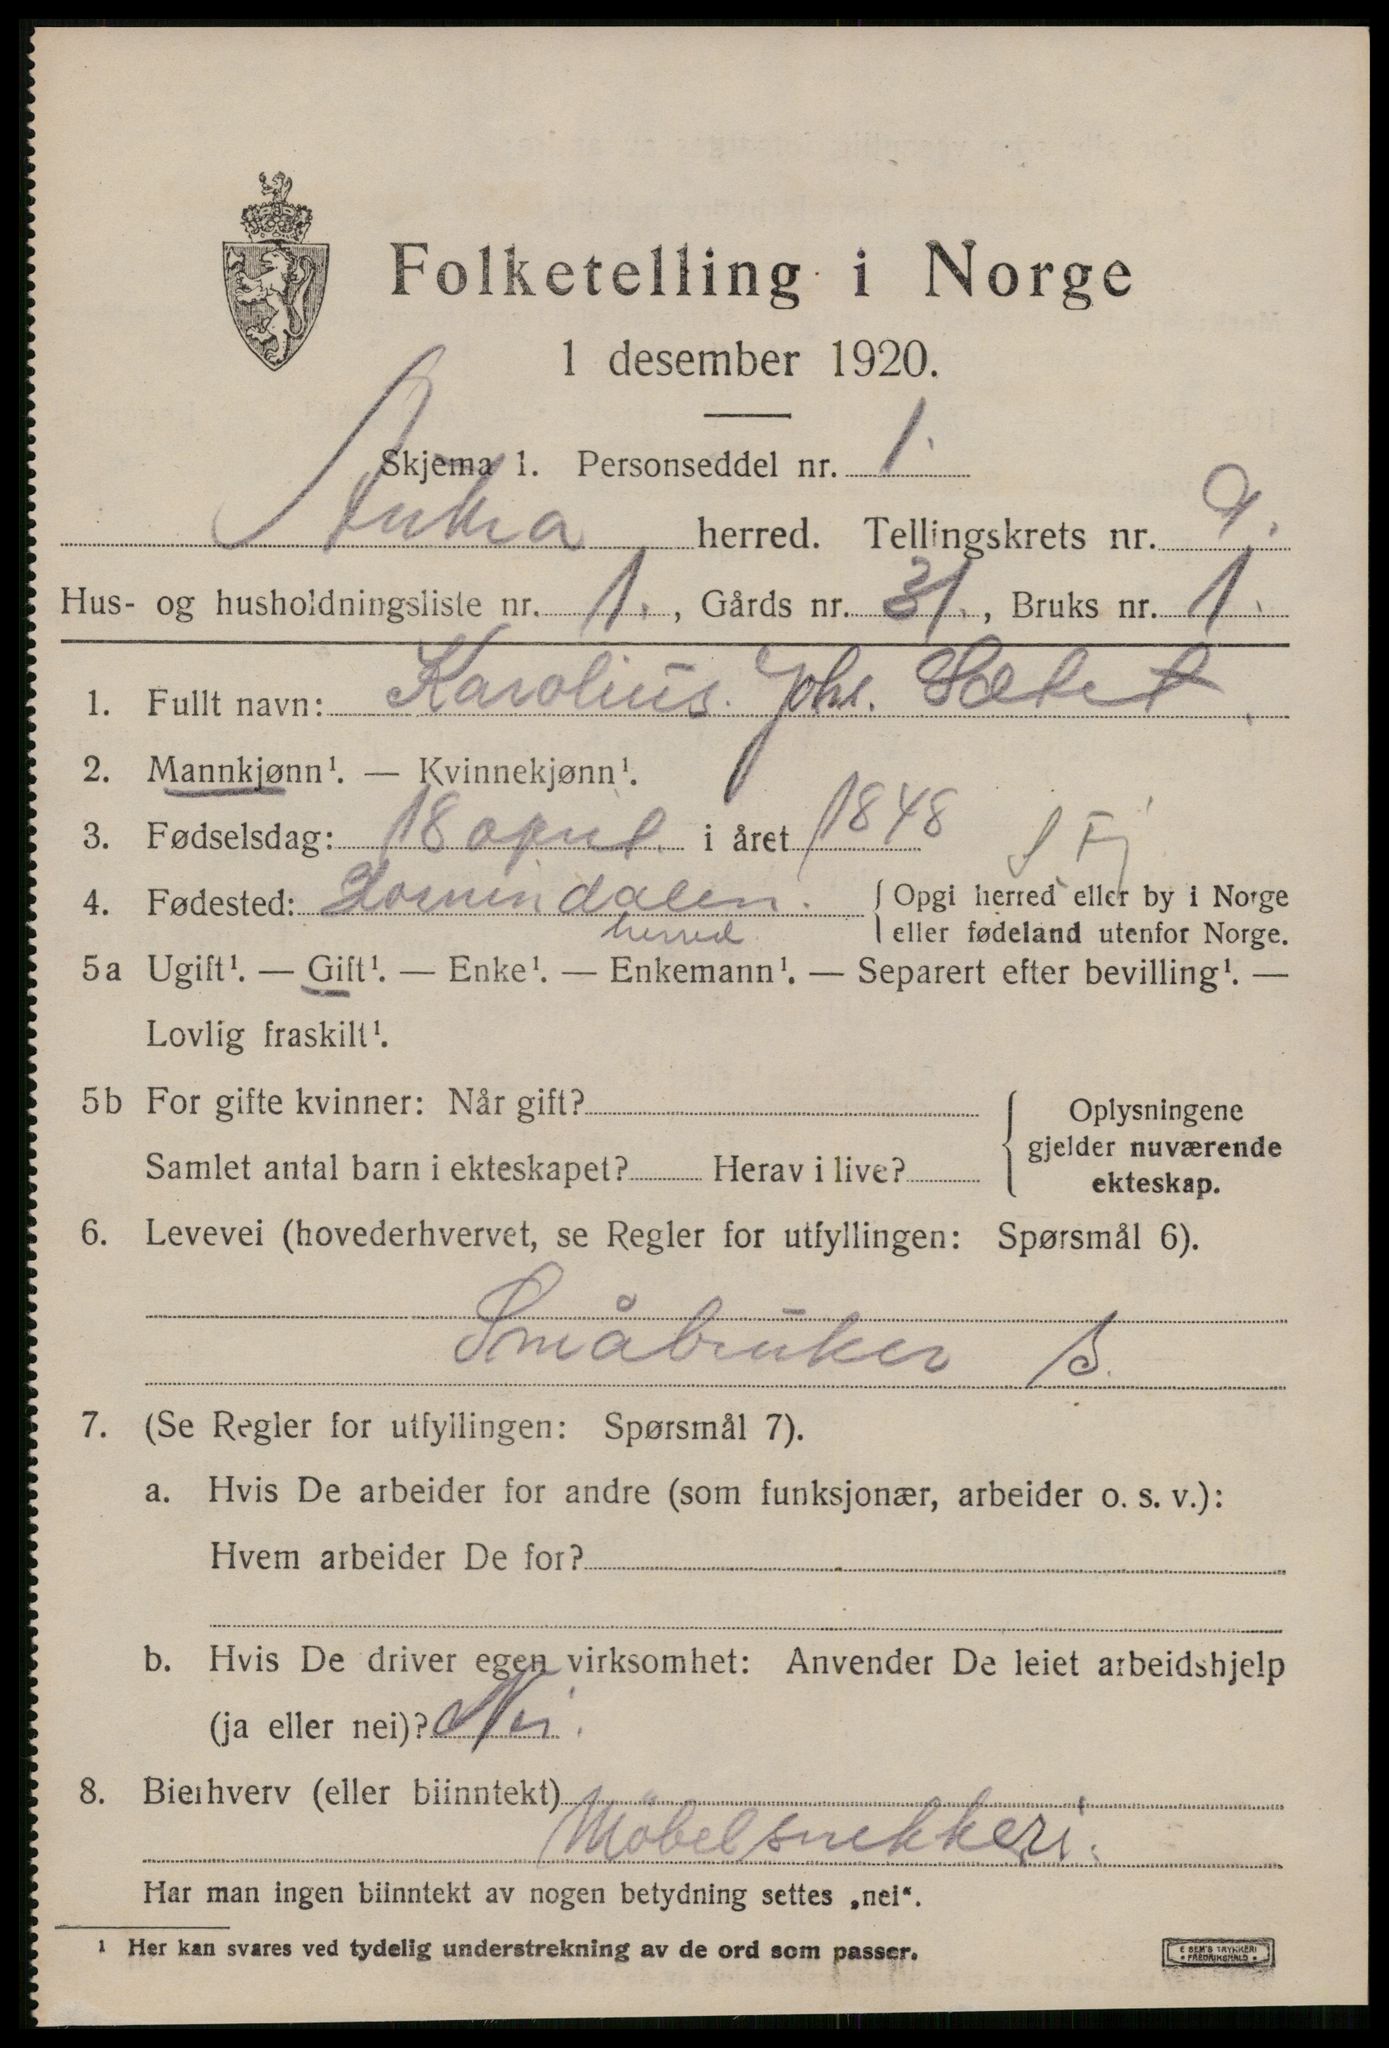 Folketelling i Norge
1 desember 1920.
Skjema 1. Personseddel nr. 1.
Aukra herred. Tellingskrets nr. 9.
Hus- og husholdningsliste nr. 1., Gårds nr. 31., Bruks nr. 1.
1. Fullt navn: Karolius. Johs. Sætet
2. Mannkjønn¹. — Kvinnekjønn¹.
3. Fødselsdag: 18 april. i året 1848
S Fj
4. Fødested: {Opgi herred eller by i Norge
herred eller fødeland utenfor Norge.
5a Ugift¹. — Gift¹. — Enke¹. — Enkemann¹. — Separert efter bevilling¹. —
Lovlig fraskilt¹.
5b For gifte kvinner: Når gift? Oplysningene
gjelder nuværende
Samlet antal barn i ekteskapet? Herav i live? ekteskap.
6. Levevei (hovederhvervet, se Regler for utfyllingen: Spørsmål 6).
Småbruker S.
7. (Se Regler for utfyllingen: Spørsmål 7).
a. Hvis De arbeider for andre (som funksjonær, arbeider o. s. v.):
Hvem arbeider De for?
b. Hvis De driver egen virksomhet: Anvender De leiet arbeidshjelp
(ja eller nei)? Nei.
8. Bierhverv (eller biinntekt)
Möbelsnekkeri.
Har man ingen biinntekt av nogen betydning settes „nei“.
¹ Her kan svares ved tydelig understrekning av de ord som passer.
E SEM'S TRYKKERI
• FREDRIKSHALD •